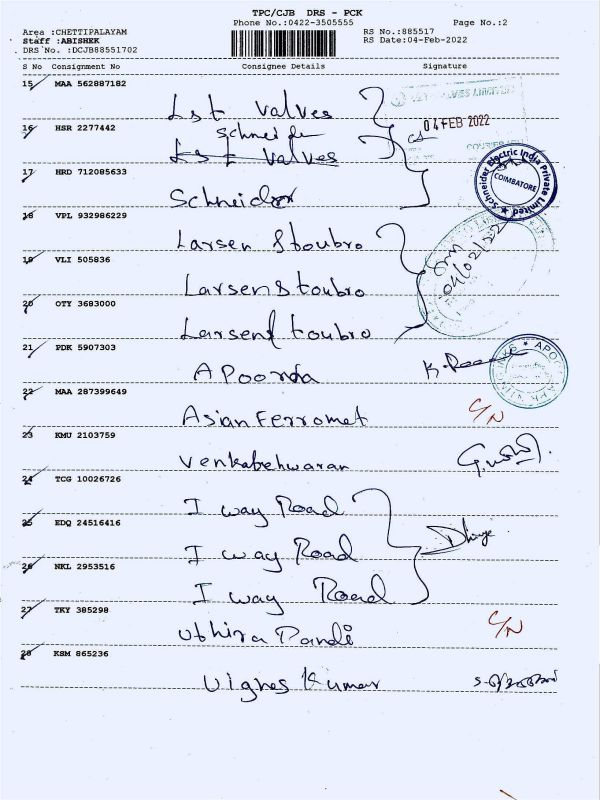 TPC/CJB DRS - PCK
Phone No.:0422-3505555 Page No.:2
Area :CHETTIPALAYAM RS No.:885517
Staff :ABISHEK RS Date:04-Feb-2022
DRS No. :DCJB88551702
S No Consignment No Consignee Details Signature
15 MAA 562887182
L&t valves
04 FEB 2022
16 HSR 2277442
Schneider
L&t valves
17 HRD 712085633
Schneider
Schneider Electric India Private Limited
COIMBATORE
18 VPL 932986229
Larsen & toubro
04/02/22
19 VLI 505836
Larsen & toubro
20 OTY 3683000
Larsen & toubro
21 PDK 5907303
A Poorna
22 MAA 287399649
Asian Ferromet C/N
23 KMU 2103759
Venkateshwaran
24 TCG 10026726
I way Road
25 EDQ 24516416
I way Road
26 NKL 2953516
I way Road
27 TKY 385298
Uthira Pandi C/N
28 KSM 865236
Vignes Kumar